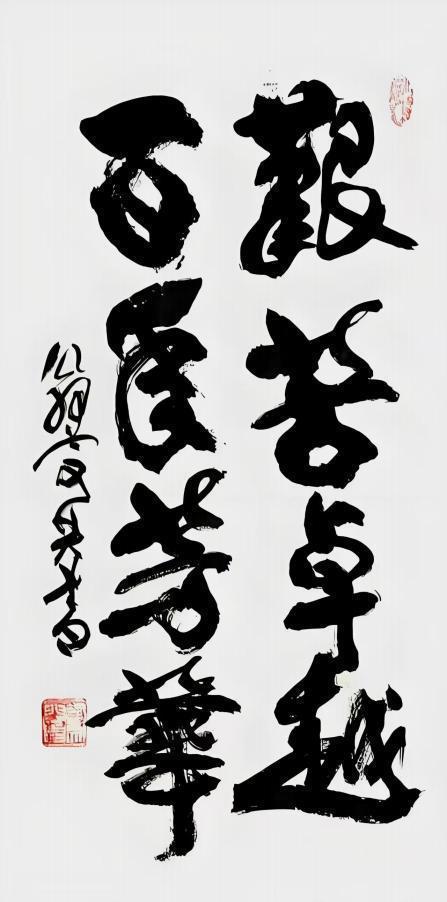 艱苦卓越
百年芳華
書